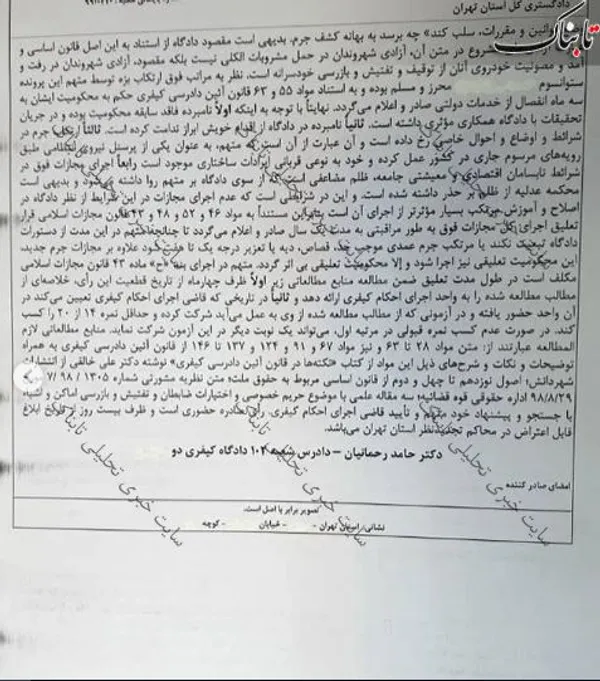 تابناک
دادگستری کل استان تهران
قوانین و مقررات، سلب کند» چه برسد به بهانه کشف جرم. بدیهی است مقصود دادگاه از استناد به این اصل قانون اساسی و
مشروع در متن آن، آزادی شهروندان در حمل مشروبات الکلی نیست بلکه مقصود، آزادی شهروندان در رفت و
آمد و مصونیت خودروی آنان از توقیف و تفتیش و بازرسی خودسرانه است. نظر به مراتب فوق ارتکاب بزه توسط متهم این پرونده
ستوانسوم محرز و مسلم بوده و به استناد مواد ۵۵ و ۶۳ قانون آئین دادرسی کیفری حکم به محکومیت ایشان به
سه ماه انفصال از خدمات دولتی صادر و اعلام می‌گردد. نهایتاً با توجه به اینکه اولاً نامبرده فاقد سابقه محکومیت بوده و در جریان
تحقیقات با دادگاه همکاری مؤثری داشته است. ثانیاً نامبرده در دادگاه از اقدام خویش ابراز ندامت کرده است. ثالثاً ارتکاب جرم در
شرائط و اوضاع و احوال خاصی رخ داده است و آن عبارت از آن است که متهم، به عنوان یکی از پرسنل نیروی انتظامی طبق
رویه‌های مرسوم جاری در کشور عمل کرده و خود به نوعی قربانی ایرادات ساختاری موجود است رابعاً اجرای مجازات فوق در
شرائط نابسامان اقتصادی و معیشتی جامعه، ظلم مضاعفی است که از سوی دادگاه بر متهم روا داشته می‌شود و بدیهی است
محکمه عدلیه از ظلم بر حذر داشته شده است. و این در شرایطی است که عدم اجرای مجازات در این شرایط از نظر دادگاه در
اصلاح و آموزش مرتکب بسیار مؤثرتر از اجرای آن است بنابراین مستنداً به مواد ۴۶ و ۵۲ و ۴۸ و ۴۳ قانون مجازات اسلامی قرار
تعلیق اجرای کل مجازات فوق به طور مراقبتی به مدت یک سال صادر و اعلام می‌گردد تا چنانچه متهم در این مدت از دستورات
دادگاه تبعیت نکند یا مرتکب جرم عمدی موجب حد، قصاص، دیه یا تعزیر درجه یک تا هفت شود علاوه بر مجازات جرم جدید،
این محکومیت تعلیقی نیز اجرا شود و إلا محکومیت تعلیقی بی اثر گردد. متهم در اجرای بند «ح» ماده ۴۳ قانون مجازات اسلامی
مکلف است در طول مدت تعلیق ضمن مطالعه منابع مطالعاتی زیر اولاً ظرف چهارماه از تاریخ قطعیت این رأی، خلاصه‌ای از
مطالب مطالعه شده را به واحد اجرای احکام کیفری ارائه دهد و ثانیاً در تاریخی که قاضی اجرای احکام کیفری تعیین می‌کند در
آن واحد حضور یافته و در آزمونی که از مطالب مطالعه شده از وی به عمل می‌آید شرکت کرده و حداقل نمره ۱۴ از ۲۰ را کسب
کند. در صورت عدم کسب نمره قبولی در مرتبه اول، می‌تواند یک نوبت دیگر در این آزمون شرکت نماید. منابع مطالعاتی لازم
المطالعه عبارتند از: متن مواد ۲۸ تا ۶۳ و نیز مواد ۶۷ و ۹۱ و ۱۲۴ و ۱۳۷ تا ۱۴۶ از قانون آئین دادرسی کیفری به همراه
توضیحات و نکات و شرح‌های ذیل این مواد از کتاب «نکته‌ها در قانون آئین دادرسی کیفری» نوشته دکتر علی خالقی از انتشارات
شهردانش؛ اصول نوزدهم تا چهل و دوم از قانون اساسی مربوط به حقوق ملت؛ متن نظریه مشورتی شماره ۱۳۰۵ / ۹۸ / ۷
۹۸/۸/۲۹ اداره حقوقی قوه قضائیه؛ سه مقاله علمی با موضوع حریم خصوصی و اختیارات ضابطان و تفتیش و بازرسی اماکن و اشیاء
با جستجو و پیشنهاد خود متهم و تأیید قاضی اجرای احکام کیفری. رأی صادره حضوری است و ظرف بیست روز از تاریخ ابلاغ
قابل اعتراض در محاکم تجدیدنظر استان تهران می‌باشد.
دکتر حامد رحمانیان – دادرس شعبه ۱۰۲ دادگاه کیفری دو
امضای صادر کننده
تصویر برابر با اصل است.
نشانی: استان تهران - - خیابان - کوچه
سایت خبری تحلیلی تابناک
سایت خبری تحلیلی تابناک
سایت خبری تحلیلی